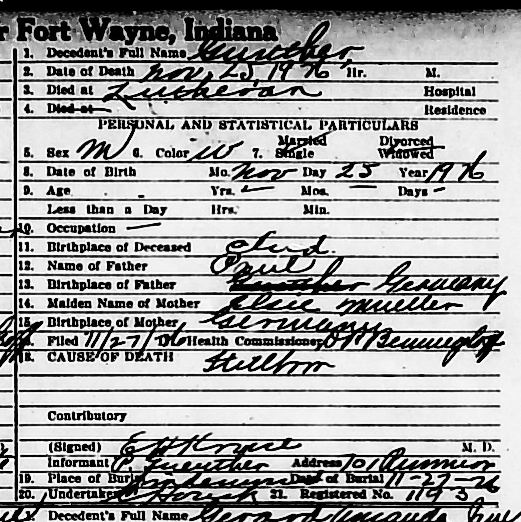 r Fort Wayne, Indiana
1. Decedent's Full Name Guenther,
2. Date of Death Nov, 25, 1926, Hr. M.
3. Died at Lutheran Hospital
4. Died at Residence
PERSONAL AND STATISTICAL PARTICULARS
5. Sex M 6. Color W 7. Married Single Divorced Widowed
8. Date of Birth Mo. Nov Day 25 Year 1926
9. Age Yrs. — Mos. — Days —
Less than a Day Hrs. Min.
10. Occupation —
11. Birthplace of Deceased Ind.
12. Name of Father Paul
13. Birthplace of Father Guenther Germany
14. Maiden Name of Mother Elsie Mueller
15. Birthplace of Mother Germany
Filed 11/27/26 Health Commissioner
18. CAUSE OF DEATH Stillborn
Contributory
(Signed) E H Kruse M. D.
Informant P. Guenther Address 701
19. Place of Burial Date of Burial 11-27-26
20. Undertaker 21. Registered No. 1193
2. Decedent's Full Name